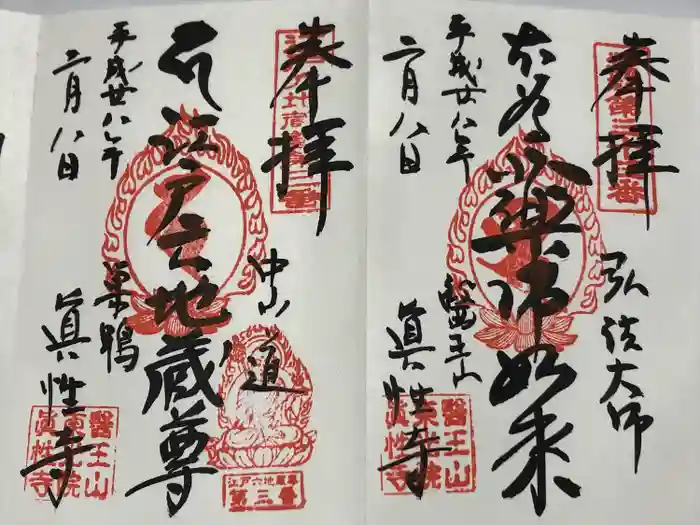 奉拝
弘法大師
本尊薬師如来
醫王山
平成廿八年
二月八日
眞性寺
醫王山
東光院
眞性寺
奉拝
中山道
江戸六地蔵尊
巣鴨
平成廿八年
二月八日
眞性寺
江戸六地蔵尊
第三番
醫王山
東光院
眞性寺